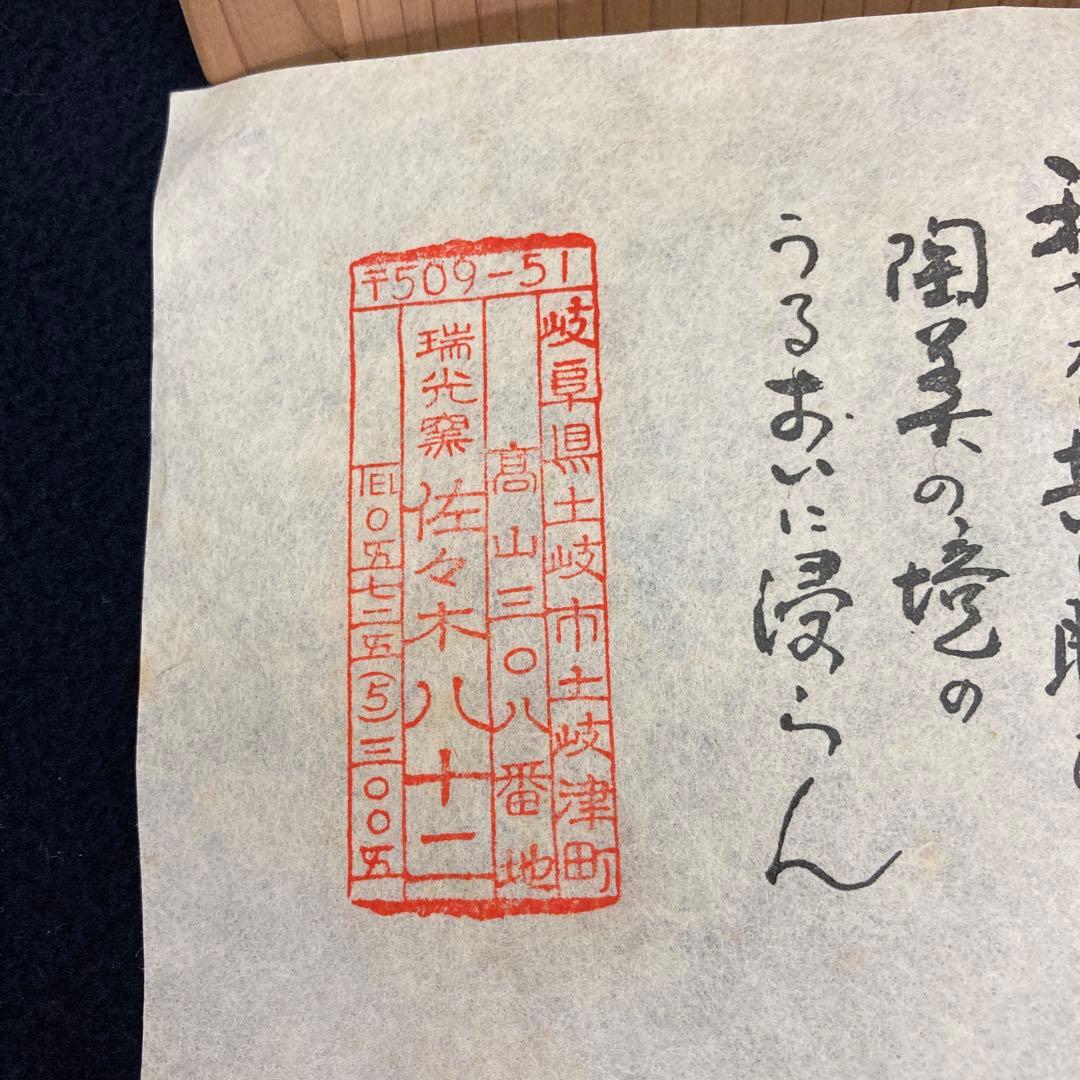 陶美の境の
うるおいに浸らん
〒509-51
岐阜県土岐市土岐津町
高山三〇八番地
瑞光窯 佐々木八十二
TEL〇五七二五(5)三〇〇五